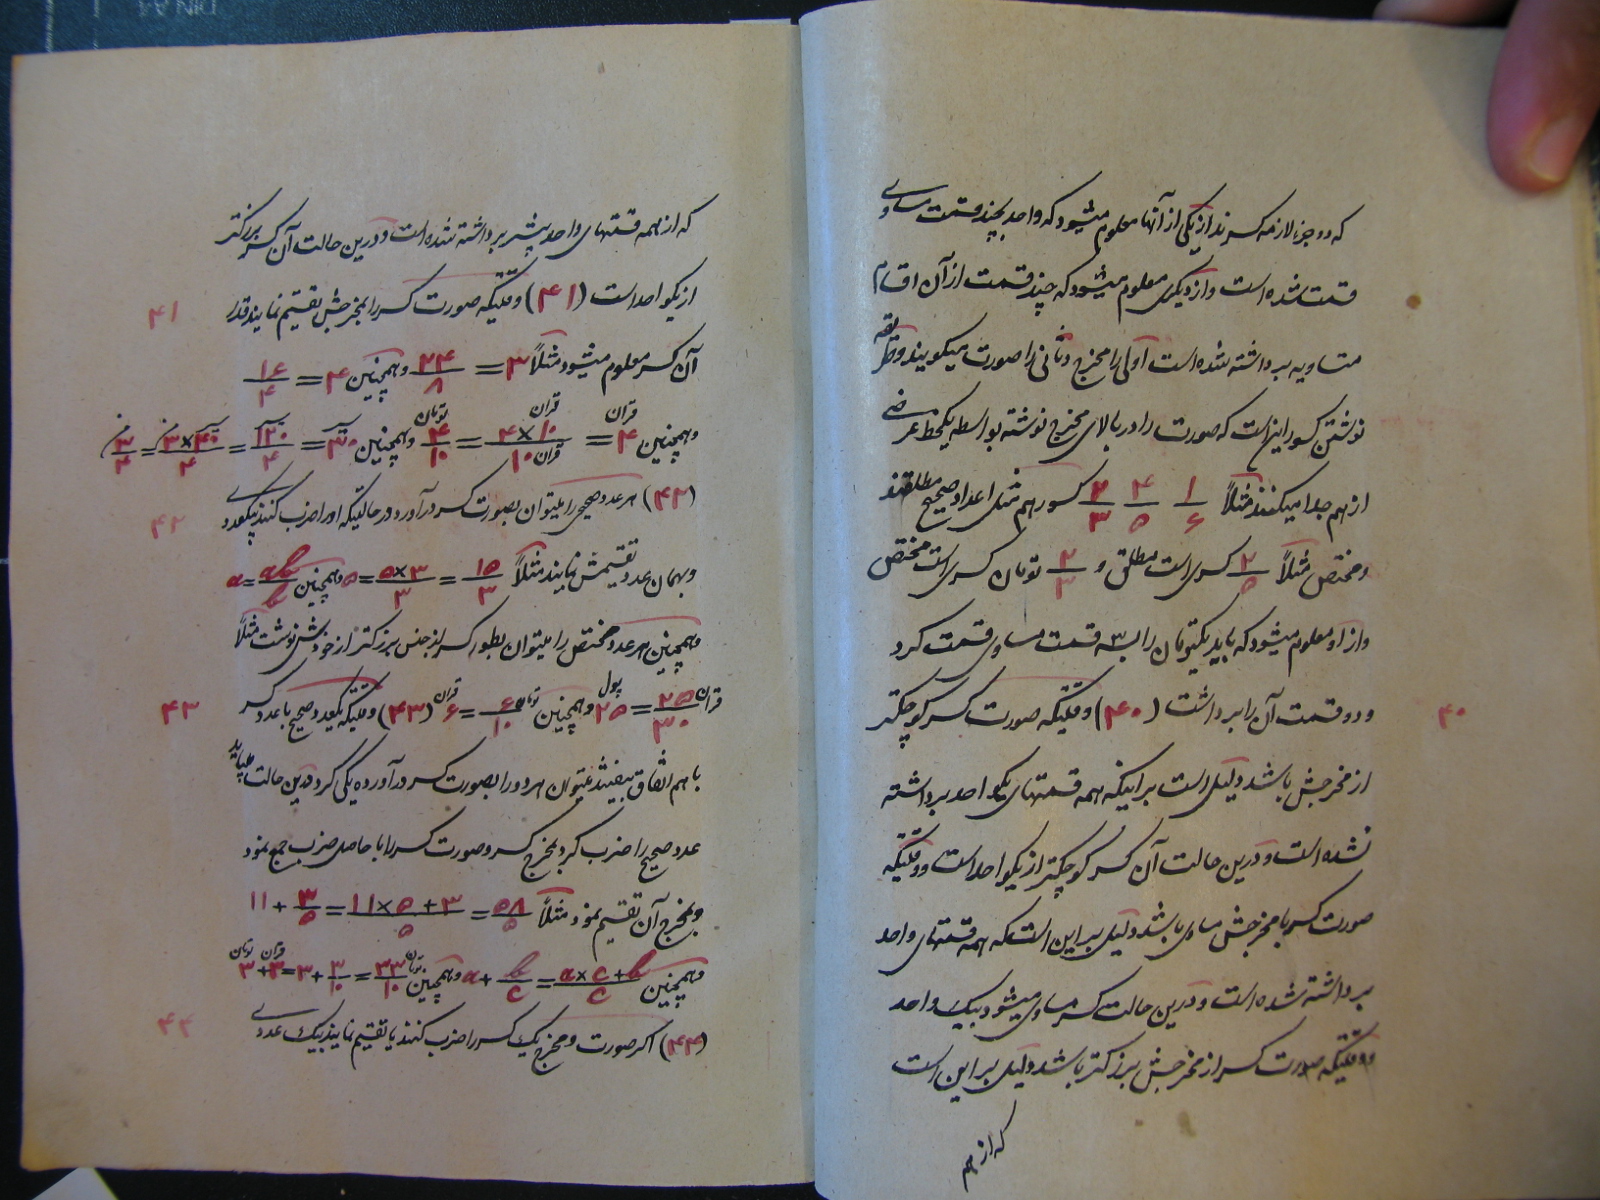 که دو جزء لازمه کسرند از یکی از آنها معلوم میشود که واحد بچند قسمت مساوی
قسمت شده است و از دیگری معلوم میشود که چند قسمت از آن اقسام
متساویه برداشته شده است اولی را مخرج و ثانی را صورت میگویند و طریقه
نوشتن کسور این است که صورت را در بالای مخرج نوشته بواسطه یکخط عرضی
از هم جدا میکنند مثلاً ۱/۶ ۴/۵ ۲/۳ کسور هم مثل اعداد صحیح مطلقند
و مختص مثلاً ۲/۵ کسری است مطلق و ۲/۳ تومان کسری است مختص
و از او معلوم میشود که باید یکتومان را بسه قسمت مساوی قسمت کرد
۴۰ و دو قسمت آن را برداشت (۴۰) وقتیکه صورت کسر کوچکتر
از مخرجش باشد دلیل است بر اینکه همه قسمتهای یکواحد برداشته
نشده است و درین حالت آن کسر کوچکتر از یکواحد است و وقتیکه
صورت کسر با مخرجش مساوی باشد دلیل بر این است که همه قسمتهای واحد
برداشته شده است و درین حالت کسر مساوی میشود بیک واحد
و وقتیکه صورت کسر از مخرجش بزرگتر باشد دلیل بر این است
که از هم
که از همه قسمتهای واحد بیشتر برداشته شده است و درین حالت آن کسر بزرگتر
از یکواحد است (۴۱) وقتیکه صورت کسر را بمخرجش تقسیم نمایند قدر ۴۱
آن کسر معلوم میشود مثلاً ۳ = ۲۴/۸ و همچنین ۴ = ۱۶/۴
و همچنین ۴ قران = ۴×۱۰ قران/۱۰ قران = ۴/۱۰ تومان و همچنین ۳۰ = ۱۲۰/۴ = ۳×۴۰/۴ = ۳/۴ من
(۴۲) هر عدد صحیحی را میتوان بصورت کسر در آورد در حالتیکه او را ضرب کنند بیکعددی ۴۲
و بهمان عدد تقسیمش نمایند مثلاً ۱۵/۳ = ۵×۳/۳ = ۵ و همچنین a = ab/b
و همچنین هر عدد مختص را میتوان بطور کسر از جنس بزرگتر از خودش نوشت مثلاً
قران ۲۵/۳۰ = ۲۵ پول و همچنین ۶/۱۰ تومان = ۶ قران (۴۳) وقتیکه یکعدد صحیح با عدد کسر ۴۳
با هم اتفاق بیفتند میتوان هر دو را بصورت کسر در آورده یکی کرد درین حالت میباید
عدد صحیح را ضرب کرد بمخرج کسر و صورت کسر را با حاصل ضرب جمع نمود
و بمخرج آن تقسیم نمود مثلاً ۵۸/۵ = ۱۱×۵+۳/۵ = ۳/۵ + ۱۱
و همچنین a + b/c = a×c+b/c و همچنین ۳۳/۱۰ تومان = ۳ + ۳/۱۰ = ۳ قران + ۳ تومان
(۴۴) اگر صورت و مخرج یک کسر را ضرب کنند یا تقسیم نمایند بیک عددی ۴۴